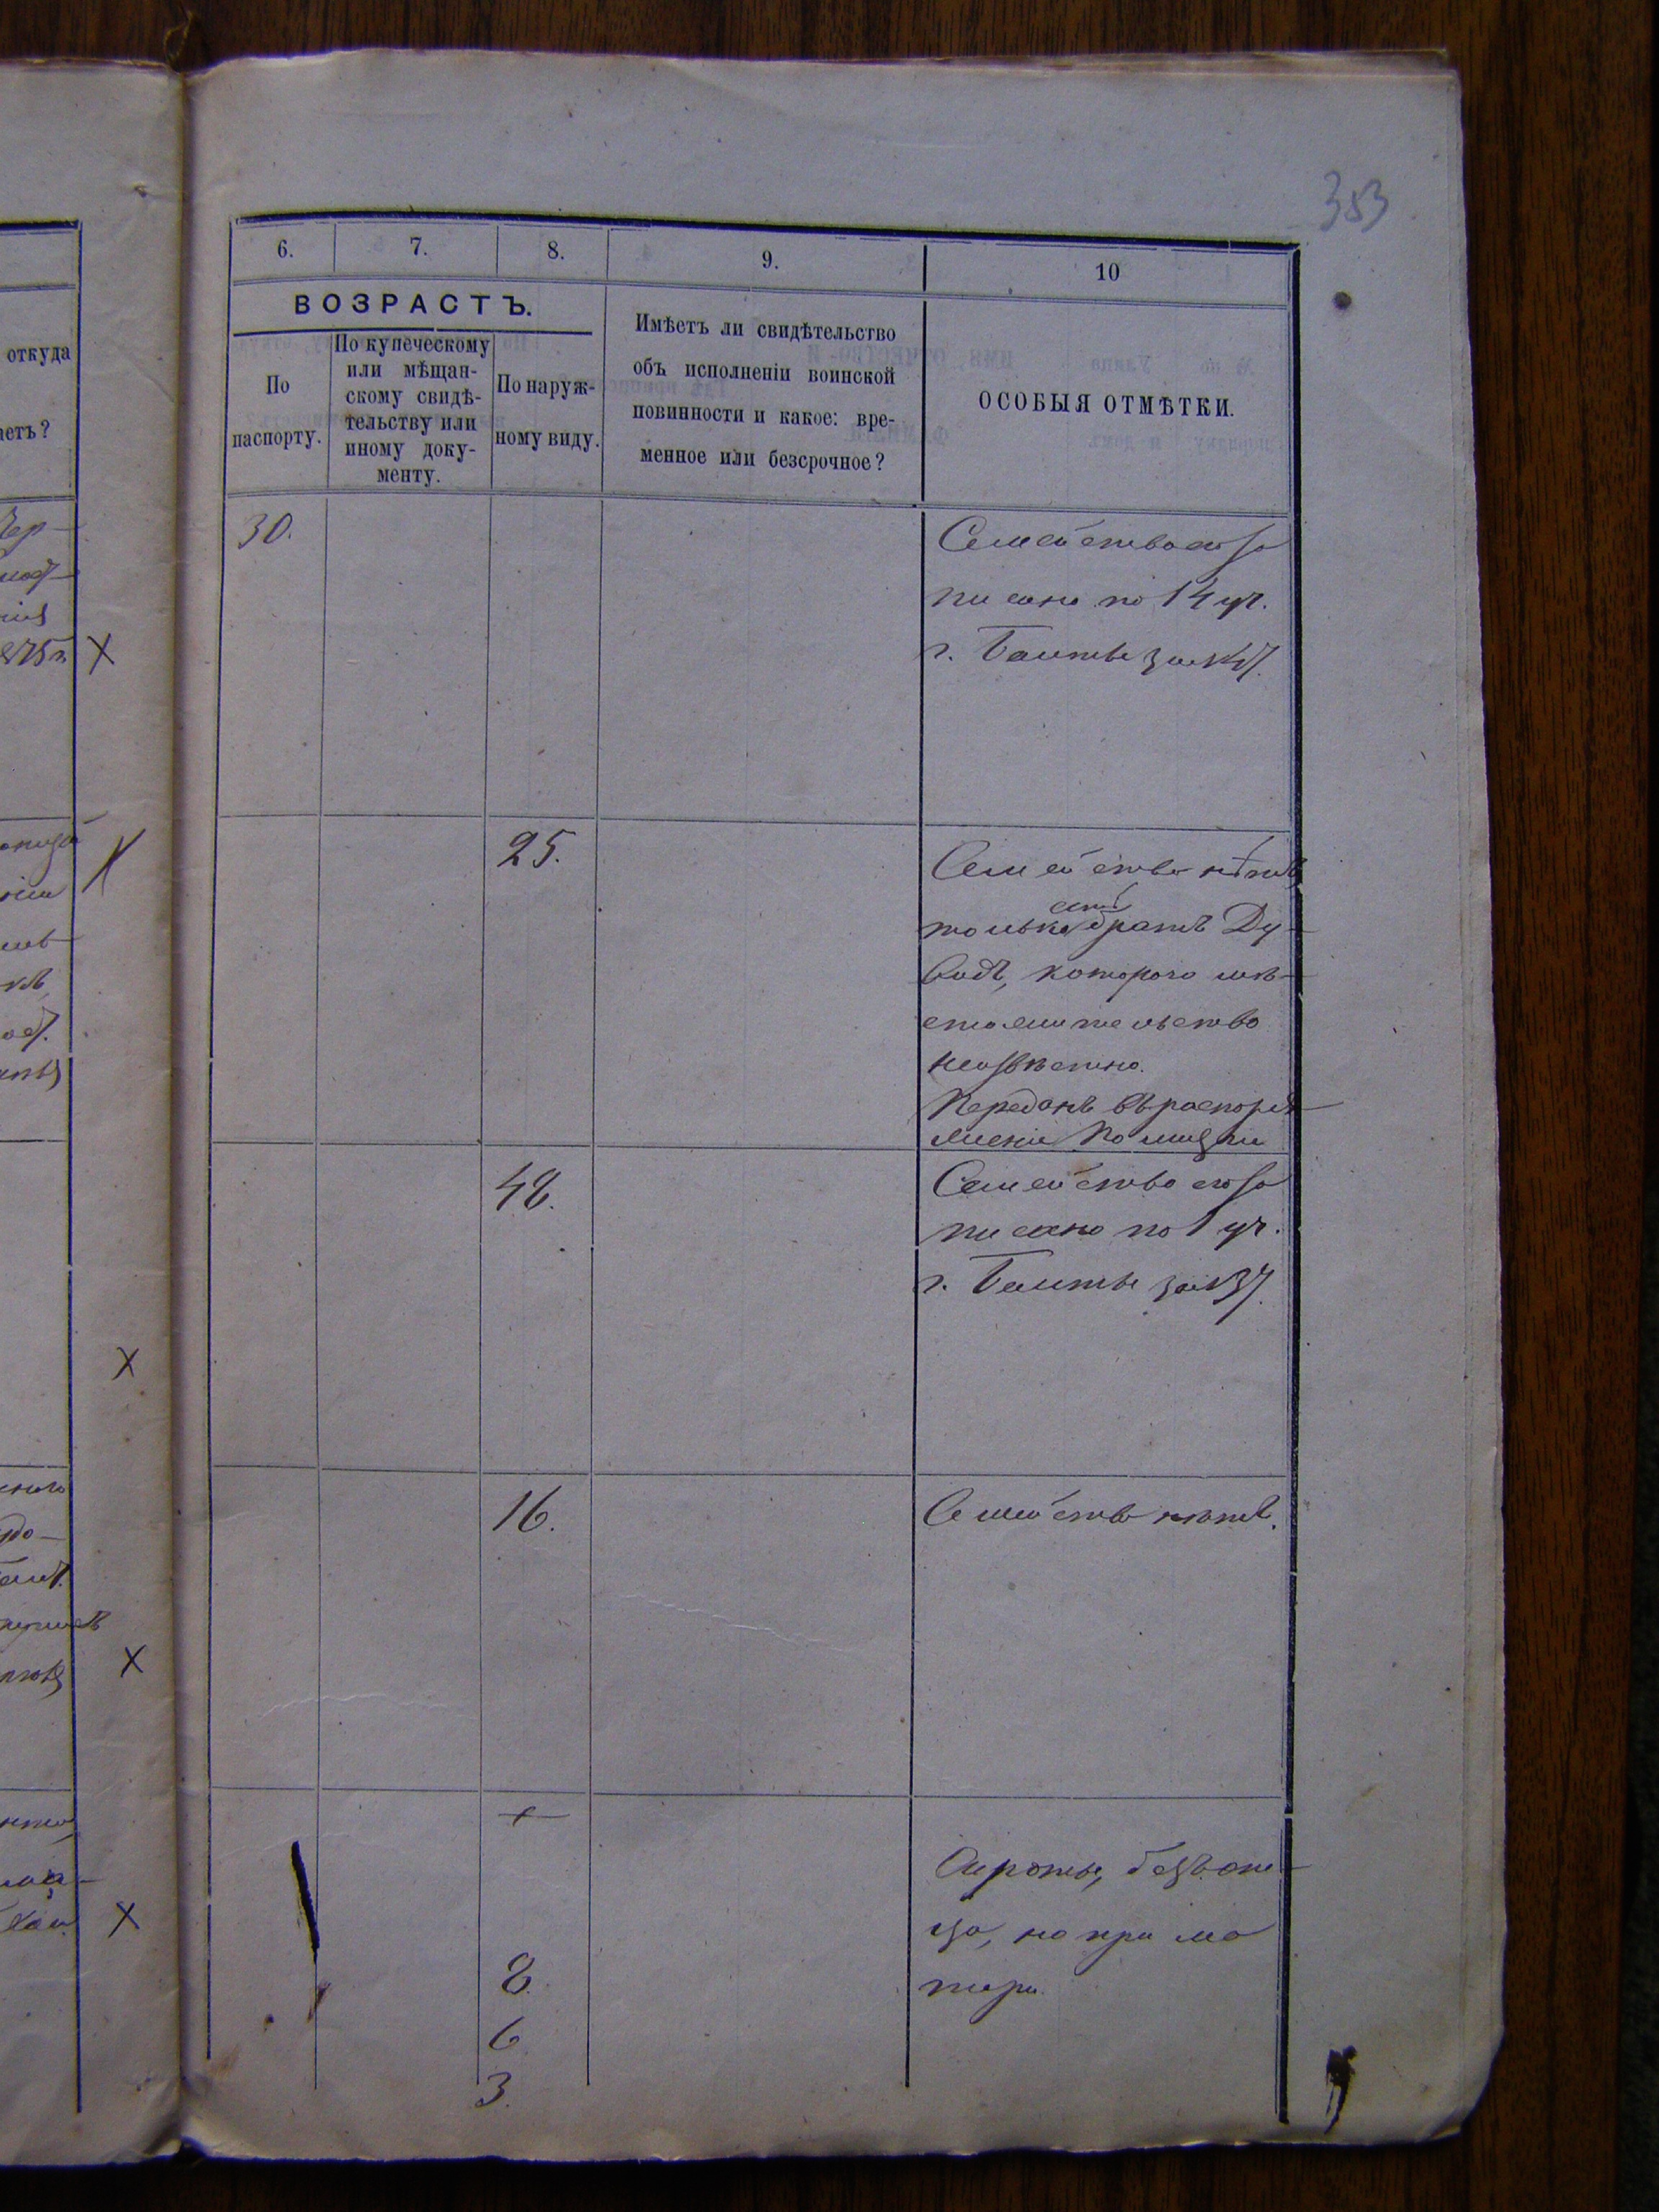 353
6.
7.
8.
9.
10
ВОЗРАСТЪ.
По
паспорту.
По купеческому
или мѣщан-
скому свидѣ-
тельству или
иному доку-
менту.
По наруж-
ному виду.
Имѣетъ ли свидѣтельство
объ исполненіи воинской
повинности и какое: вре-
менное или безсрочное?
ОСОБЫЯ ОТМѢТКИ.
откуда
аетъ?
30.
Семейство его за
писано по 14 уч.
г. Балты за №
25.
Семейства нѣтъ,
есть
только братъ Ду-
видъ, котораго мѣ-
стожительство
неизвѣстно.
Переданъ въ распоря-
женіе Полиціи
48.
Семейство его за
писано по 1 уч.
г. Балты за № 37.
16.
Семейства нѣтъ.
8.
6
3.
Сироты, безъ от-
ца, но при ма
тери.
Х
Х
Х
Х
Х